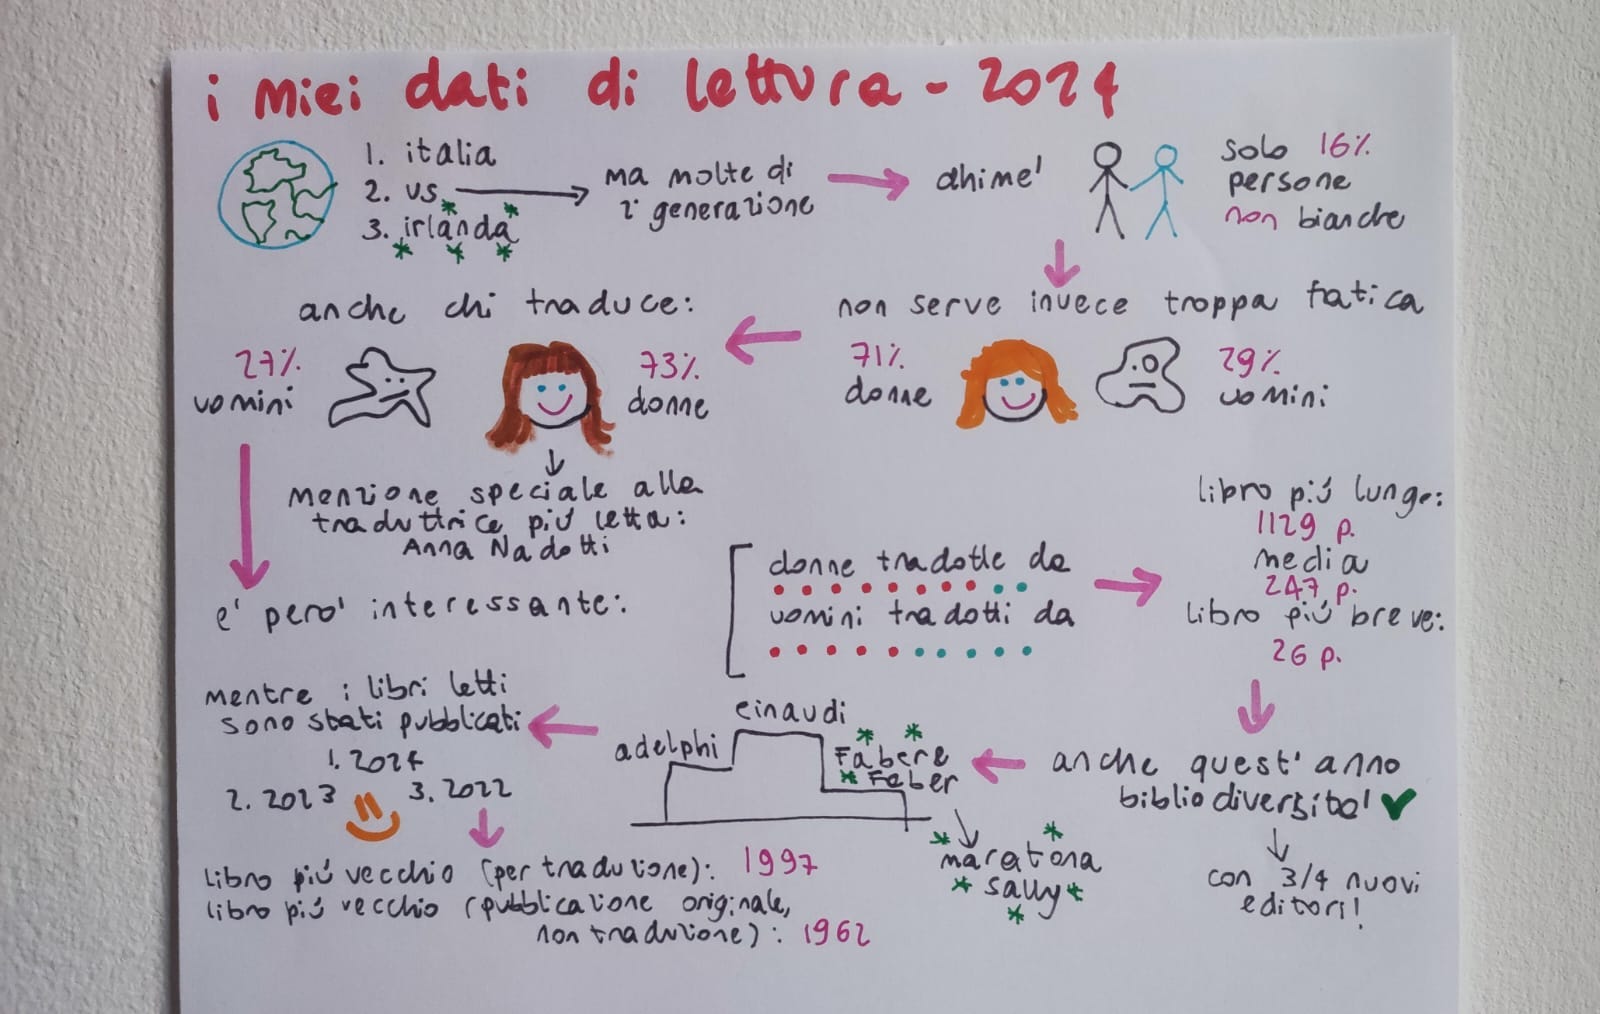 i miei dati di lettura - 2024
1. italia
2. us
3. irlanda
ma molte di
2° generazione
ahime'
solo 16%
persone
non bianche
non serve invece troppa fatica
71%
donne
29%
uomini
anche chi traduce:
27%
uomini
73%
donne
menzione speciale alla
traduttrice più letta:
Anna Nadotti
e' pero' interessante:
donne tradotte da
uomini tradotti da
libro più lungo:
1129 p.
media
247 p.
libro più breve:
26 p.
anche quest'anno
bibliodiversita'
con 3/4 nuovi
editori!
adelphi
einaudi
Fabere
Faber
maratona
sally
mentre i libri letti
sono stati pubblicati
1. 2024
2. 2023
3. 2022
libro più vecchio (per traduzione): 1997
libro più vecchio (pubblicazione originale,
non traduzione): 1962